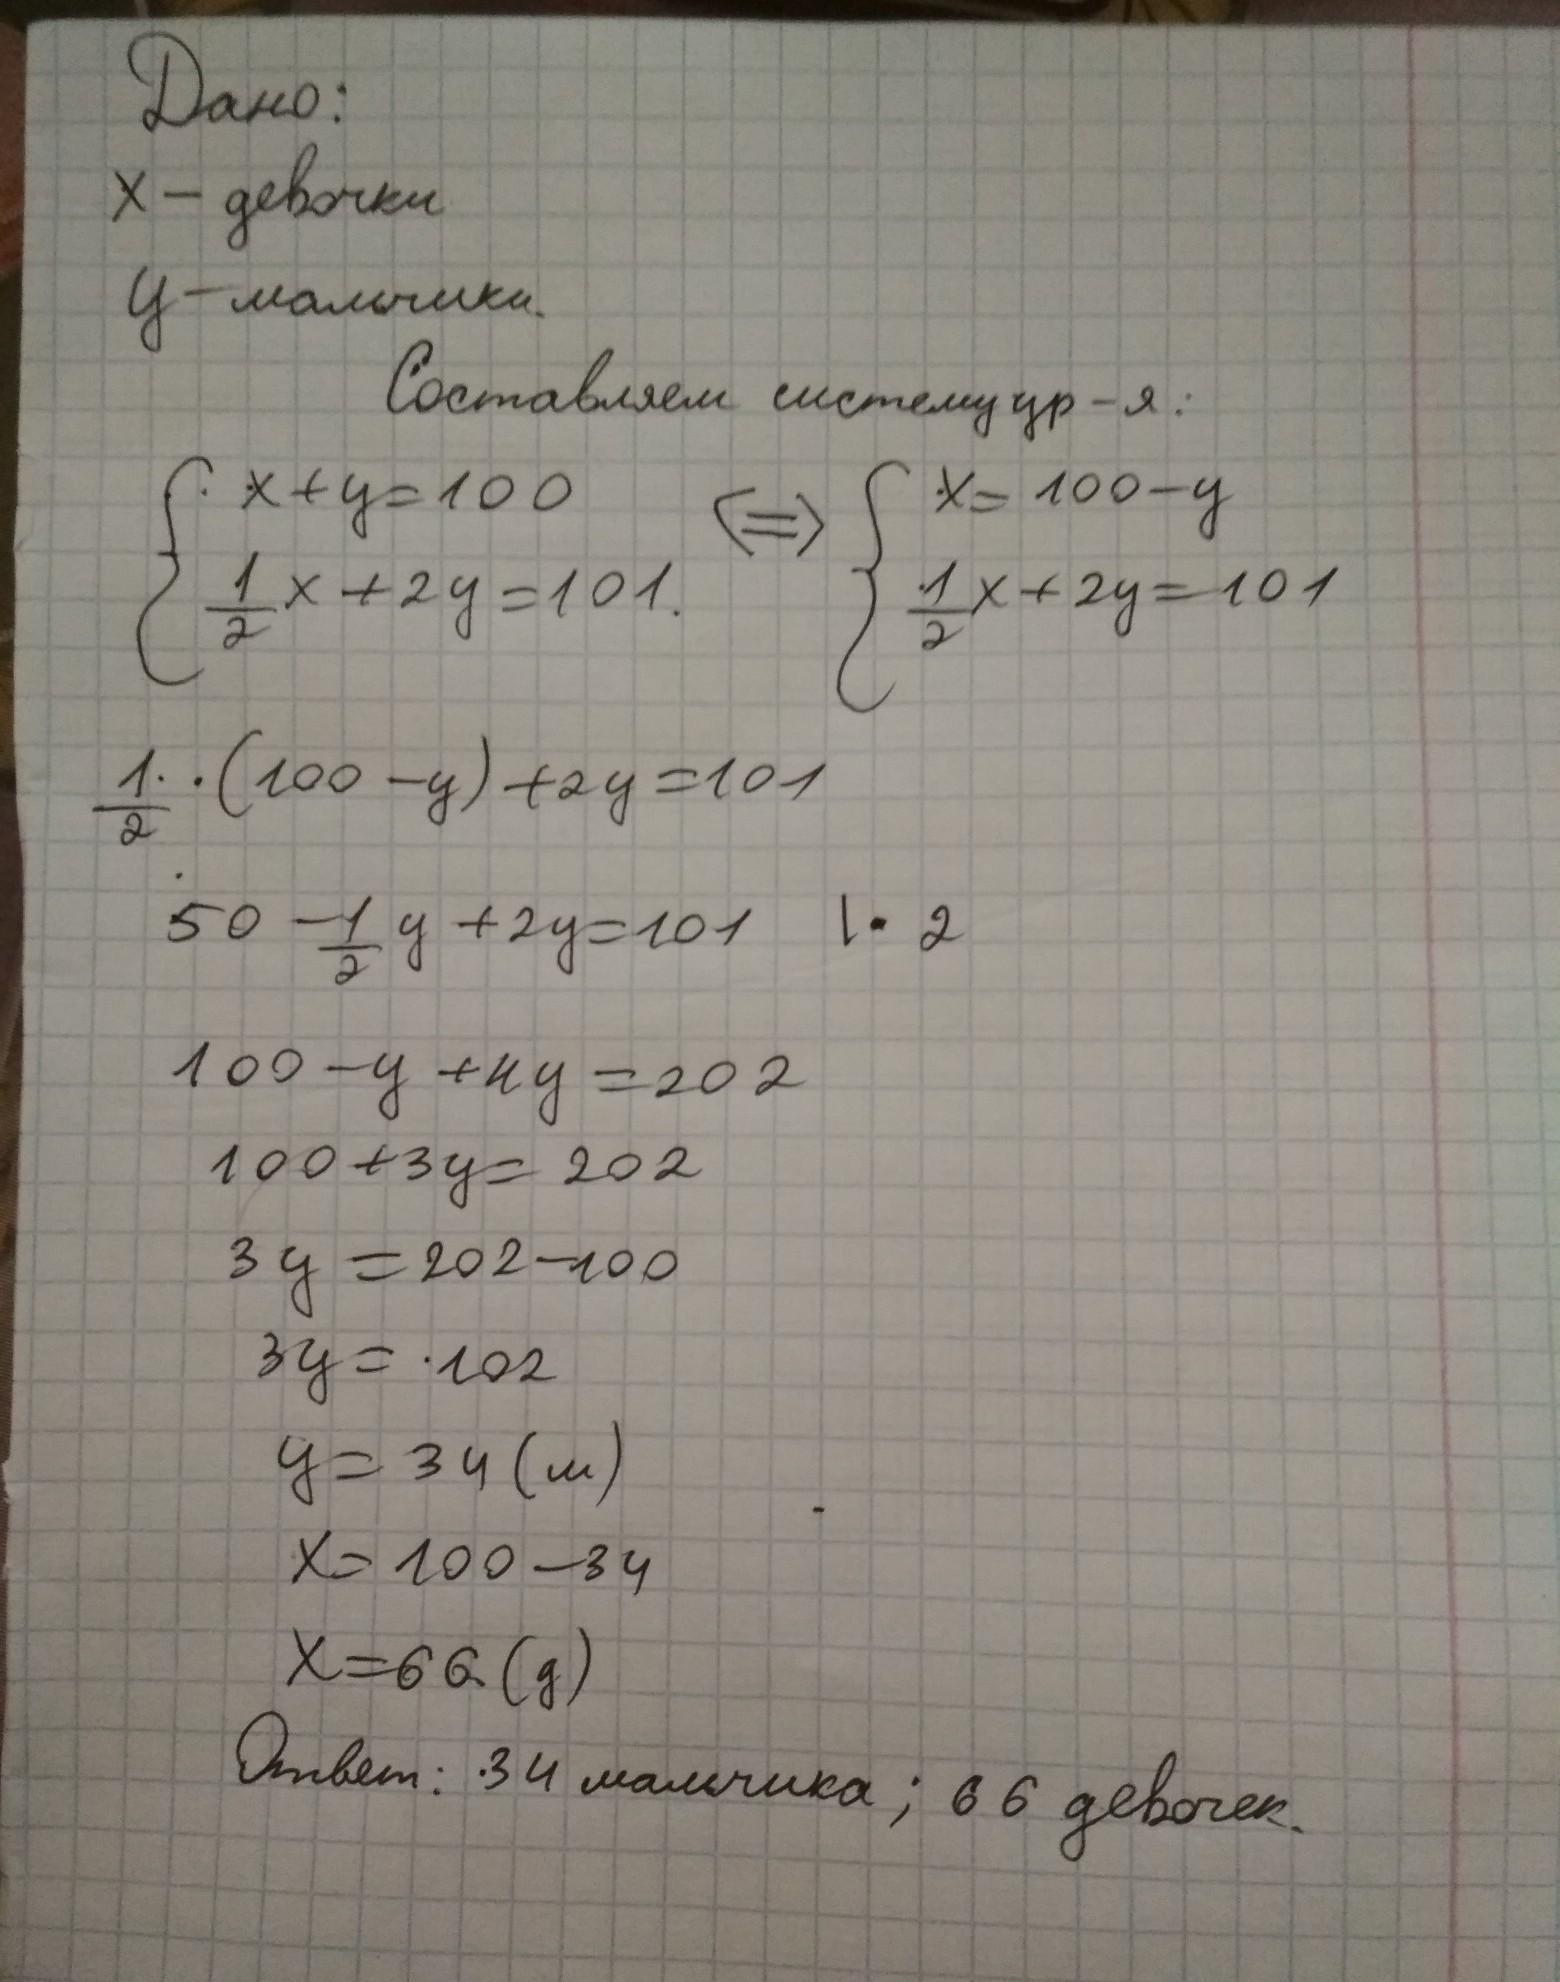 Дано:
x – девочки
y – мальчики.
Составляем систему ур-я:
{ x+y=100 <=> { x=100-y
{ 1/2 x+2y=101. { 1/2 x+2y=101
1/2 · (100-y)+2y=101
50 - 1/2 y+2y=101 | · 2
100-y+4y=202
100+3y=202
3y=202-100
3y=102
y=34 (м)
x=100-34
x=66 (д)
Ответ: 34 мальчика; 66 девочек.